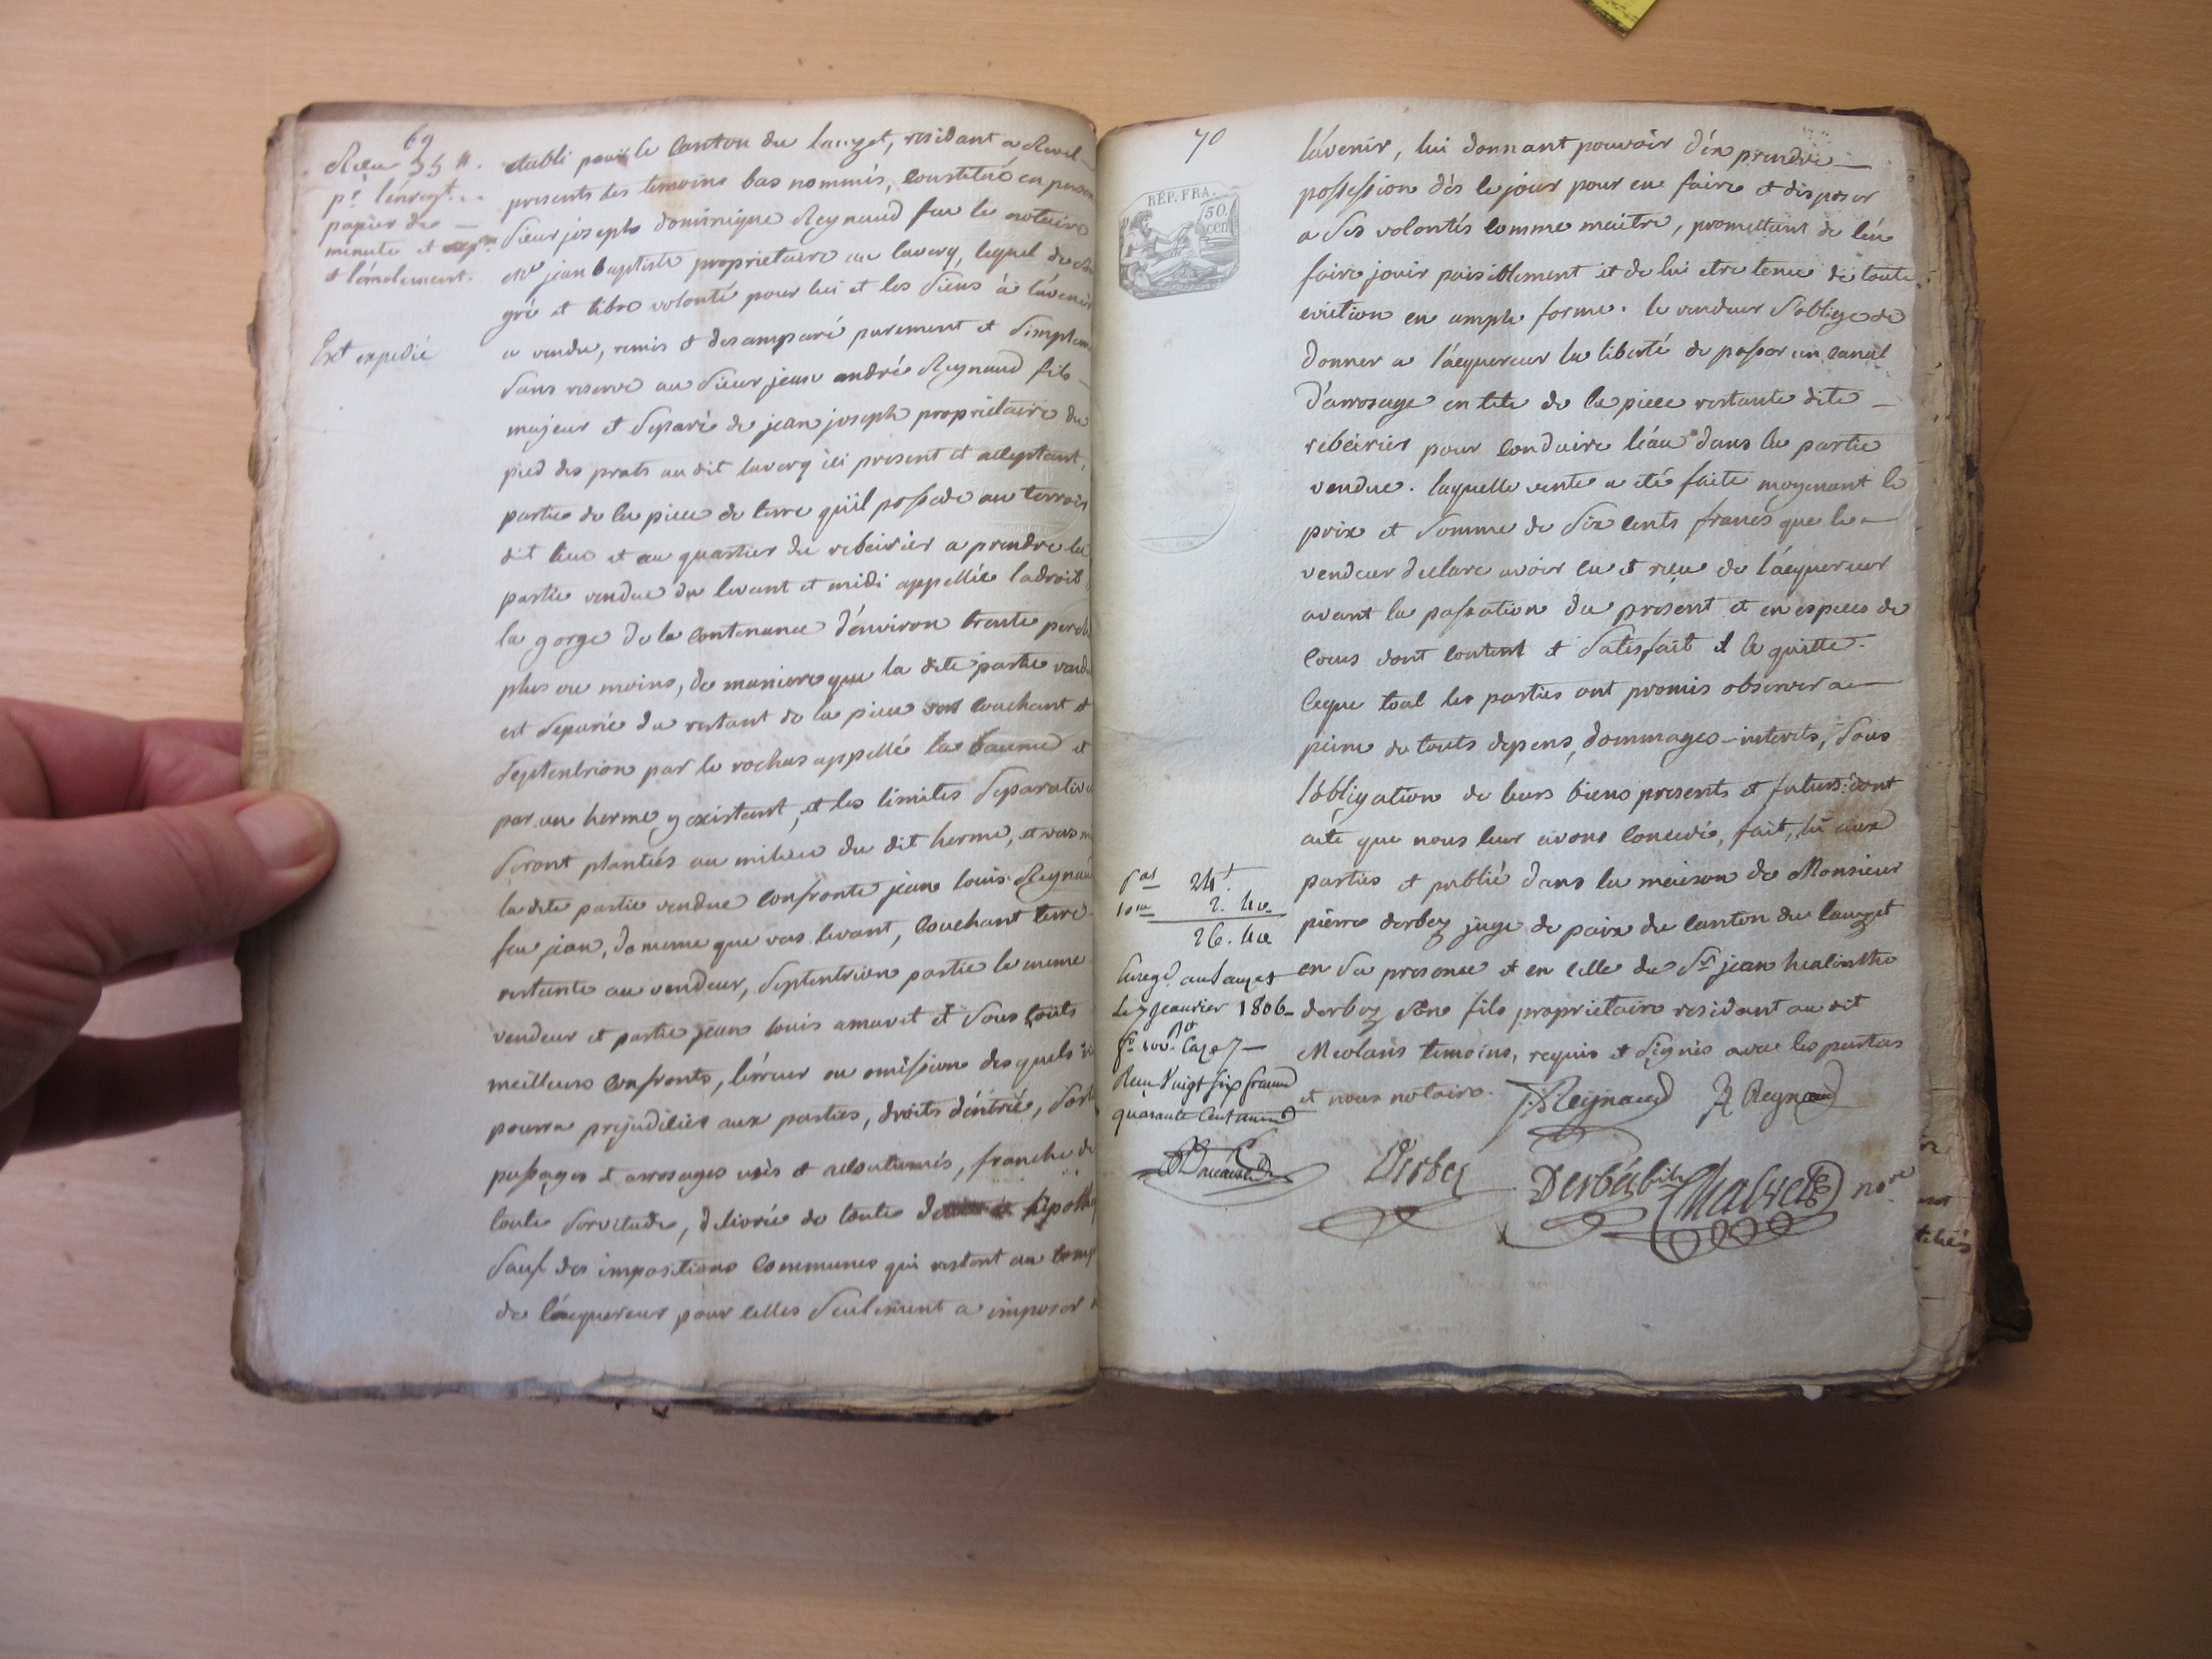 69
Reçu 35 #.
pr. l'enregt. ..
papier de
minute et
et l'émolument.
Ext expedié
etabli pour le Canton du lauzet, residant a Revel
presents les temoins bas nommés, constitué en person
sieur joseph dominique Reynaud feu le notaire
Me jean baptiste proprietaire au laverq, lequel de son
gré et libre volonté pour lui et les siens à l'avenir
a vendu, remis et desamparé purement et simplem
sans reserve au sieur jean andré Reynaud fils
majeur et separé de jean joseph proprietaire du
pied des prats au dit laverq ici present et acceptant,
partie de la piece de terre qu'il possede au terroir
dit lieu et au quartier du rebeirier a prendre la
partie vendue du levant et midi appellée ladroit
la gorge de la contenance d'environ trente perch
plus ou moins, de maniere que la dite partie vendu
est separée du restant de la piece vers couchant et
septentrion par le rochas appellé la baume et
par un herme y existant, et les limites separative
seront plantées au milieu du dit herme, et vers mi
la dite partie vendue confronte jean louis Reynau
feu jean, de meme que vers levant, couchant terre
restante au vendeur, septentrion partie le meme
vendeur et partie jean louis amavet et sous touts
meilleurs confronts, l'erreur ou omission desquels n
pourra prejudicier aux parties, droits d'entrée, sort
passages et arrosages usés et accoutumés, franche de
toute servitude, delivrée de toute hipothe
sauf des impositions communes qui restent au comp
de l'acquereur pour celles seulement a imposer
70
RÉP. FRA.
50.
cen
l'avenir, lui donnant pouvoir d'en prendre
possession dès le jour pour en faire et disposer
a ses volontés comme maitre, promettant de l'en
faire jouir paisiblement et de lui etre tenu de toute
eviction en ample forme. le vendeur s'oblige de
donner a l'acquereur la liberté de passer un canal
d'arrosage en tete de la piece restante dite
rebeirier pour conduire l'eau dans la partie
vendue. laquelle vente a été faite moyenant le
prix et somme de six cents francs que le
vendeur declare avoir eu et reçu de l'acquereur
avant la passation du present et en especes de
cours dont content et satisfait il le quitte.
ceque tout les parties ont promis observer a
peine de touts depens, dommages-interets, sous
l'obligation de leurs biens presents et futurs: dont
acte que nous leur avons concedé, fait, lu aux
parties et publié dans la maison de Monsieur
pierre derbez juge de paix du canton du lauzet
en sa presence et en celle du Sr jean hiacinthe
derbez son fils proprietaire residant au dit
Meolans temoins, requis et signés avec les parties
et nous notaire.
24 f
10me 2. 40
26. 40
Enregt. au Lauzet
le 7 Jeanvier 1806
fo. 100 Ro Case 7
Reçu Vingt six francs
quarante Centimes
J. Reynaud
JA Reynaud
Derbez
Derbéz fils
Chabret nore